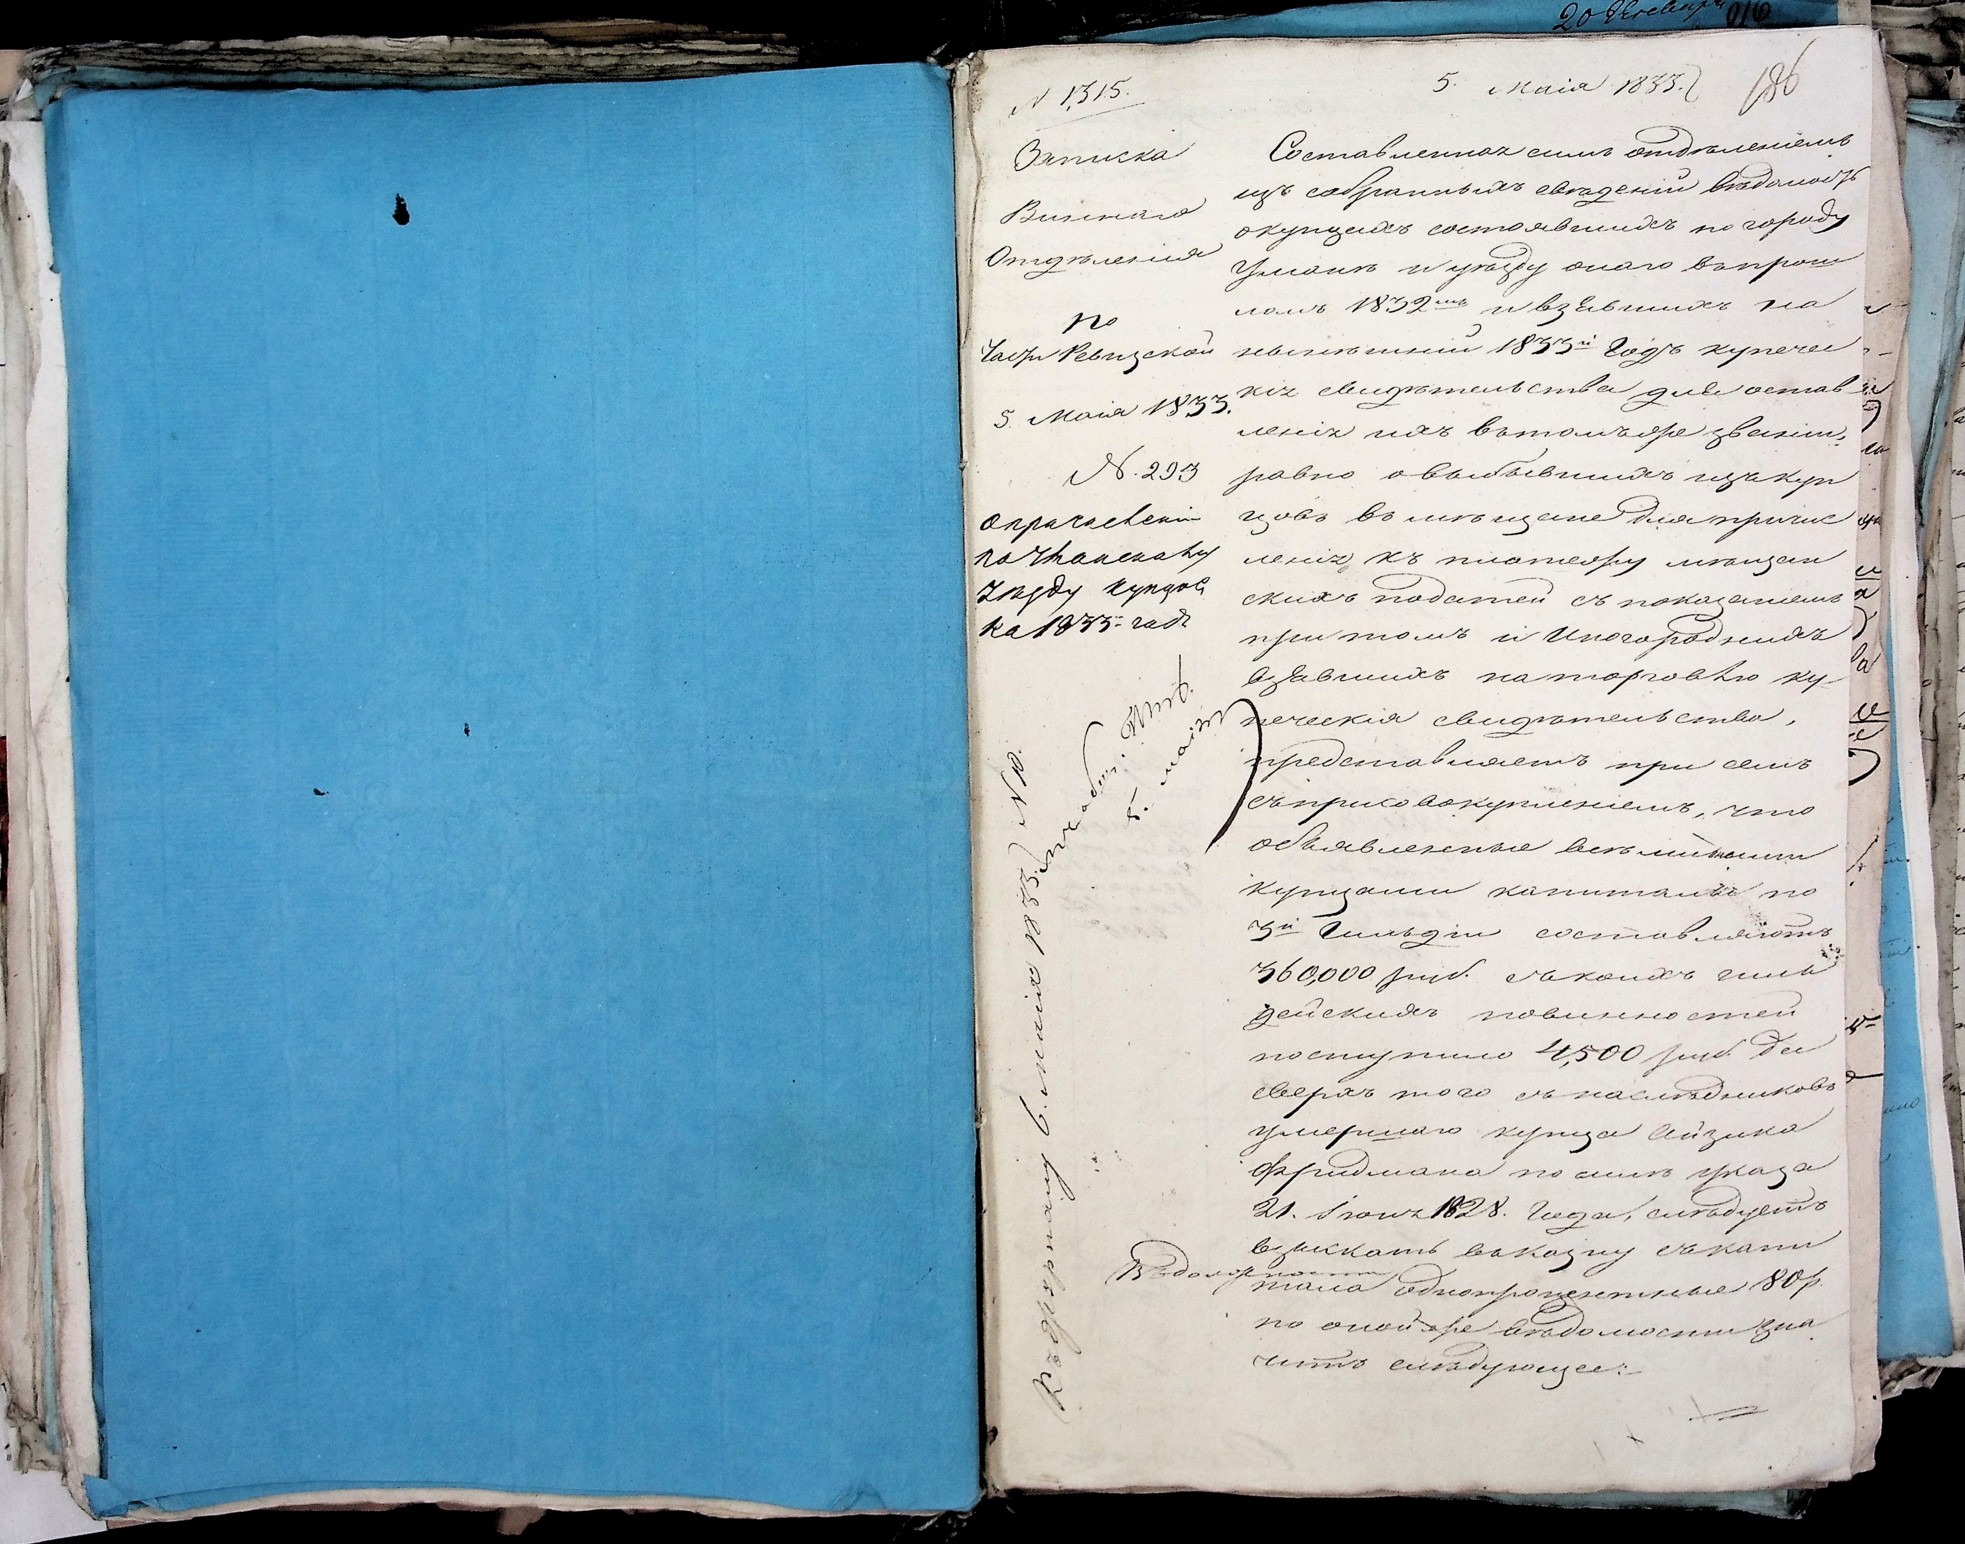 20 Декабря
N 1,315.
5. Маія 1833.
186
Записка
Виннаго
Отдѣленія
по
Части Ревизской
5. Маія 1833.
N. 293
о причисленіи
по Уманскому
уѣзду купцовъ
на 1833 годъ
5. маія
6. маія 1833. N 10.
Вѣдомости
Составленная симъ отдѣленіемъ
изъ собранныхъ свѣденій вѣдомость
о купцахъ состоявшихъ по городу
Уманѣ и уѣзду онаго въ прош
ломъ 1832мъ и взявшихъ на
нынѣшній 1833й Годъ купечес
кія свидѣтельства для остав
ленія ихъ въ томъ же званіи,
равно о выбывшихъ изъ куп
цовъ въ мѣщане для причис
ленія къ платежу мѣщан
скихъ податей съ показаніемъ
при томъ и Иногородныхъ
взявшихъ на торговлю ку-
печескія свидѣтельства,
представляетъ при семъ
съ присовокупленіемъ, что
объявленные всѣми
купцами капиталы по
3й Гильдіи составляютъ
360,000 руб. съ коихъ гиль
дейскихъ повинностей
поступило 4,500 руб. Да
сверхъ того съ наслѣдниковъ
умершаго купца Айзика
Фридмана по силѣ указа
21. Іюня 1828. Года, слѣдуетъ
взыскать въ казну съ капи
тала однопроцентные 80 р.
по оной же вѣдомости зна
читъ слѣдующее: